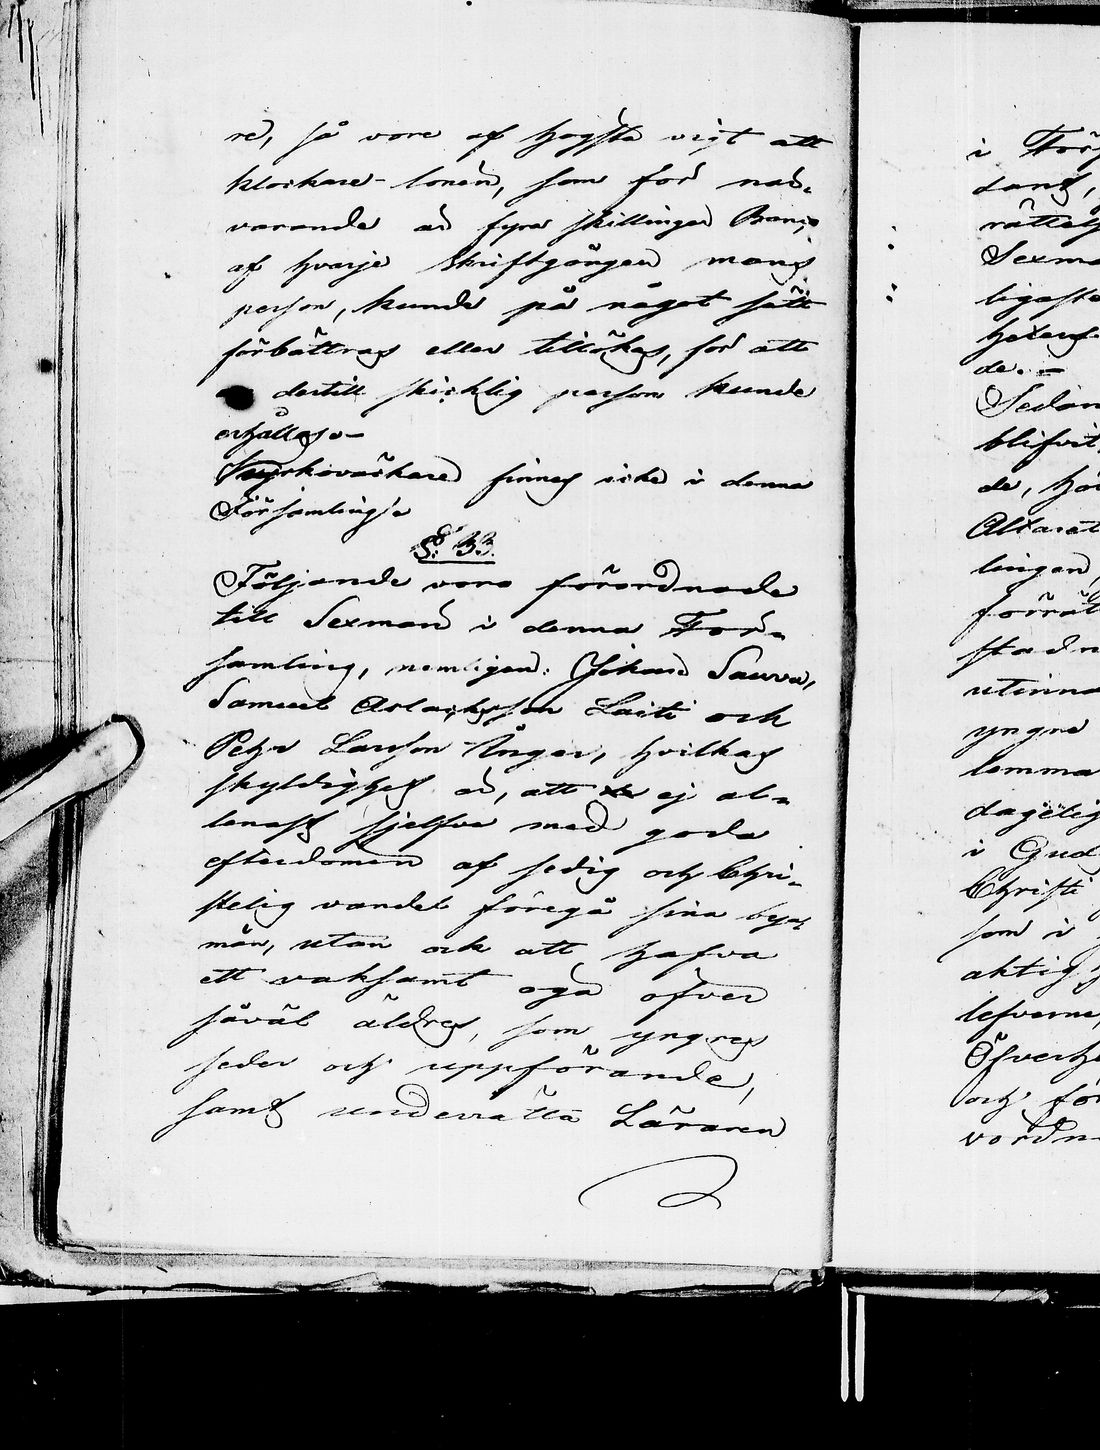 re, så vore af högsta vigt att
klockare-lönen, som för när-
varande är fyra skillingar Banco
af hvarje skriftgången mans
person, kunde på något sätt
förbättras eller tillökas, för att
dertill skicklig person kunde
erhållas.-
Kyrkoväktare finnes icke i denna
Församling.
§. 33.
Följande voro förordnade
till Sexmän i denna För-
samling, nemligen: Johan Saurva,
Samuel Aslachsson Laiti och
Pehr Larsson Unger, hvilkas
skyldighet är, att ej al-
lenast sjelfve med goda
efterdömen af sedig och Chri-
stelig vandel föregå sina by-
män, utan ock att hafva
ett vaksamt öga öfver
såväl äldres, som yngres
seder och uppförande,
samt underrätta Läraren
i Förs
dant,
rättels
Sexmä
ligaste
de.-
Sedan
blifvit
de,
Altaret
lingen,
förrät
utinna
yngre
lemma
dagelig
i Gud
Christi
som i
aktig
lefverne,
Öfverhe
och för
vördn